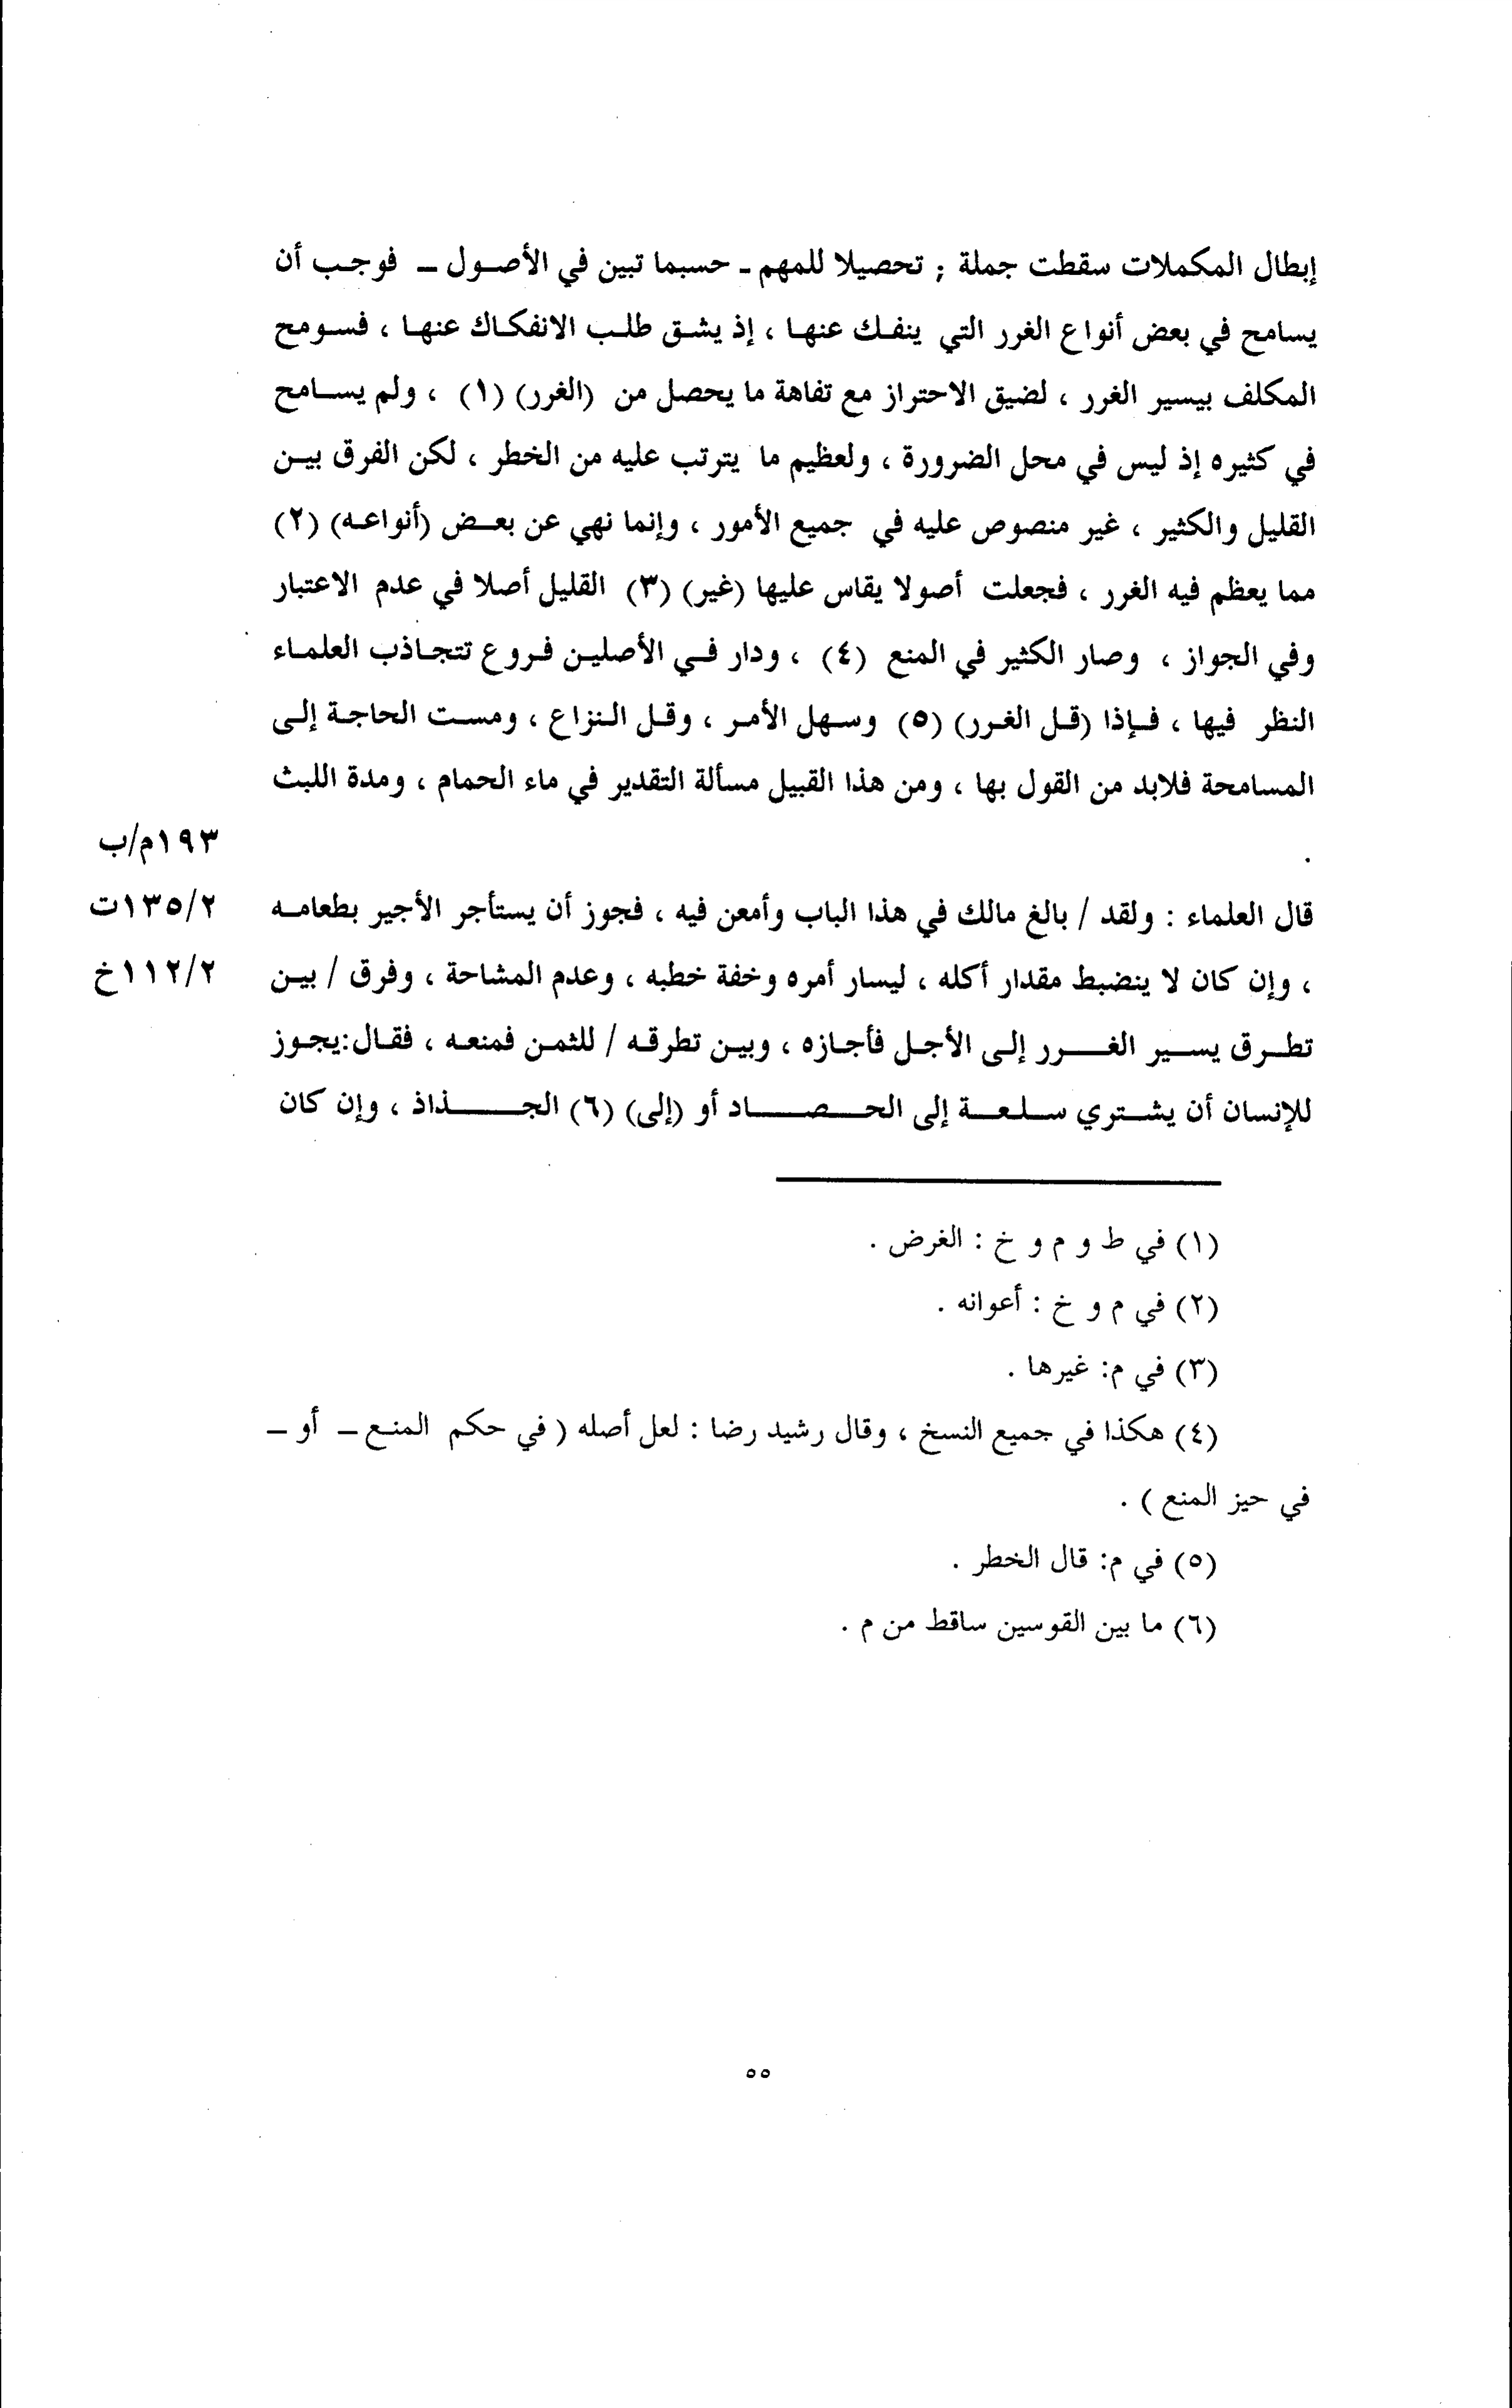 إبطال المكملات سقطت جملة ; تحصيلا للمهم - حسبما تبين في الأصول – فوجب أن
يسامح في بعض أنواع الغرر التي ينفك عنها ، إذ يشق طلب الانفكاك عنها ، فسومح
المكلف بيسير الغرر ، لضيق الاحتراز مع تفاهة ما يحصل من (الغرر) (١) ، ولم يسامح
في كثيره إذ ليس في محل الضرورة ، ولعظيم ما يترتب عليه من الخطر ، لكن الفرق بين
القليل والكثير ، غير منصوص عليه في جميع الأمور ، وإنما نهي عن بعض (أنواعه) (٢)
مما يعظم فيه الغرر ، فجعلت أصولا يقاس عليها (غير) (٣) القليل أصلا في عدم الاعتبار
وفي الجواز ، وصار الكثير في المنع (٤) ، ودار في الأصلين فروع تتجاذب العلماء
النظر فيها ، فإذا (قل الغرر) (٥) وسهل الأمر ، وقل النزاع ، ومست الحاجة إلى
المسامحة فلابد من القول بها ، ومن هذا القبيل مسألة التقدير في ماء الحمام ، ومدة اللبث
.
١٩٣م/ب
قال العلماء : ولقد / بالغ مالك في هذا الباب وأمعن فيه ، فجوز أن يستأجر الأجير بطعامه
١٣٥/٢ت
، وإن كان لا ينضبط مقدار أكله ، ليسار أمره وخفة خطبه ، وعدم المشاحة ، وفرق / بين
١١٢/٢خ
تطرق يسير الغرر إلى الأجل فأجازه ، وبين تطرقه / للثمن فمنعه ، فقال:يجوز
للإنسان أن يشتري سلعة إلى الحصاد أو (إلى) (٦) الجذاذ ، وإن كان
(١) في ط و م و خ : الغرض .
(٢) في م و خ : أعوانه .
(٣) في م: غيرها .
(٤) هكذا في جميع النسخ ، وقال رشيد رضا : لعل أصله ( في حكم المنع – أو –
في حيز المنع ) .
(٥) في م: قال الخطر .
(٦) ما بين القوسين ساقط من م .
٥٥